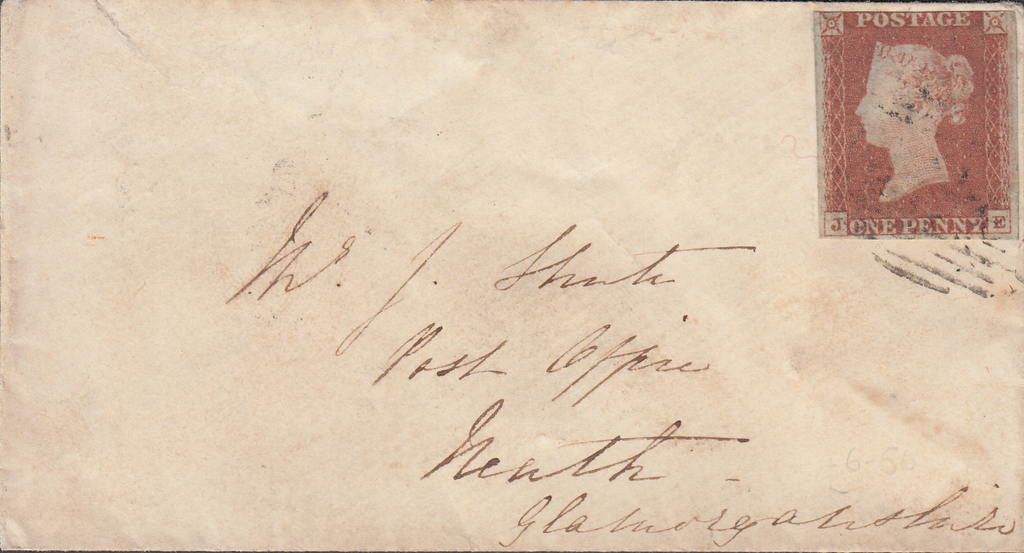 POSTAGE
J ONE PENNY E
Mr. J. Shute
Post Office
Neath
Glamorganshire